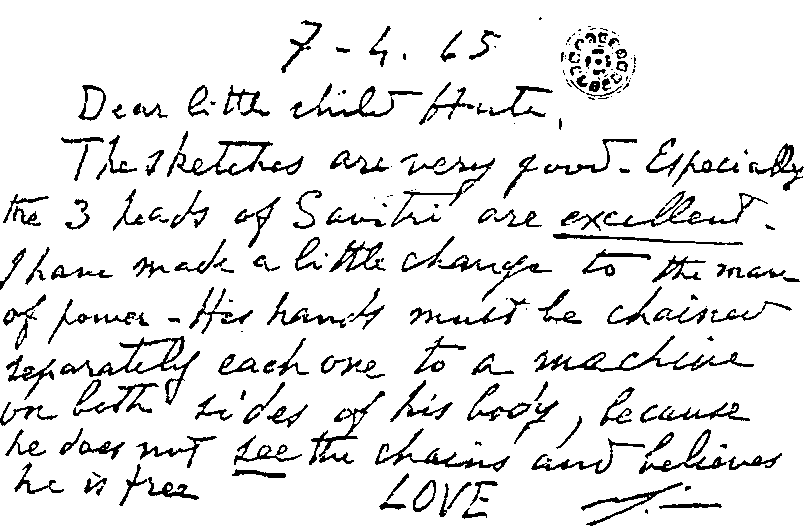 7-4.65
Dear little child Huta,
The sketches are very good. Especially
the 3 heads of Savitri are excellent.
I have made a little change to the man
of power - His hands must be chained
separately each one to a machine
on both sides of his body, because
he does not see the chains and believes
he is free
LOVE